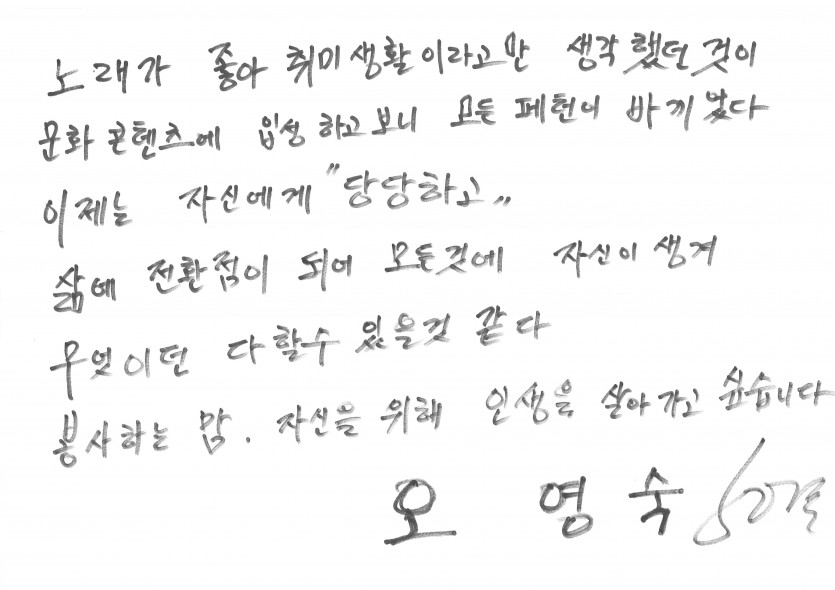 노래가 좋아 취미생활이라고만 생각했던 것이
문화 콘텐츠에 입성하고보니 모든 페헌이 바끼었다
이제는 자신에게 "당당하고"
삶에 전환점이 되어 모든것에 자신이 생겨
무엇이던 다할수 있을것 같다
봉사하는 맘. 자신을 위해 인생을 살아가고 싶습니다
오 영 숙